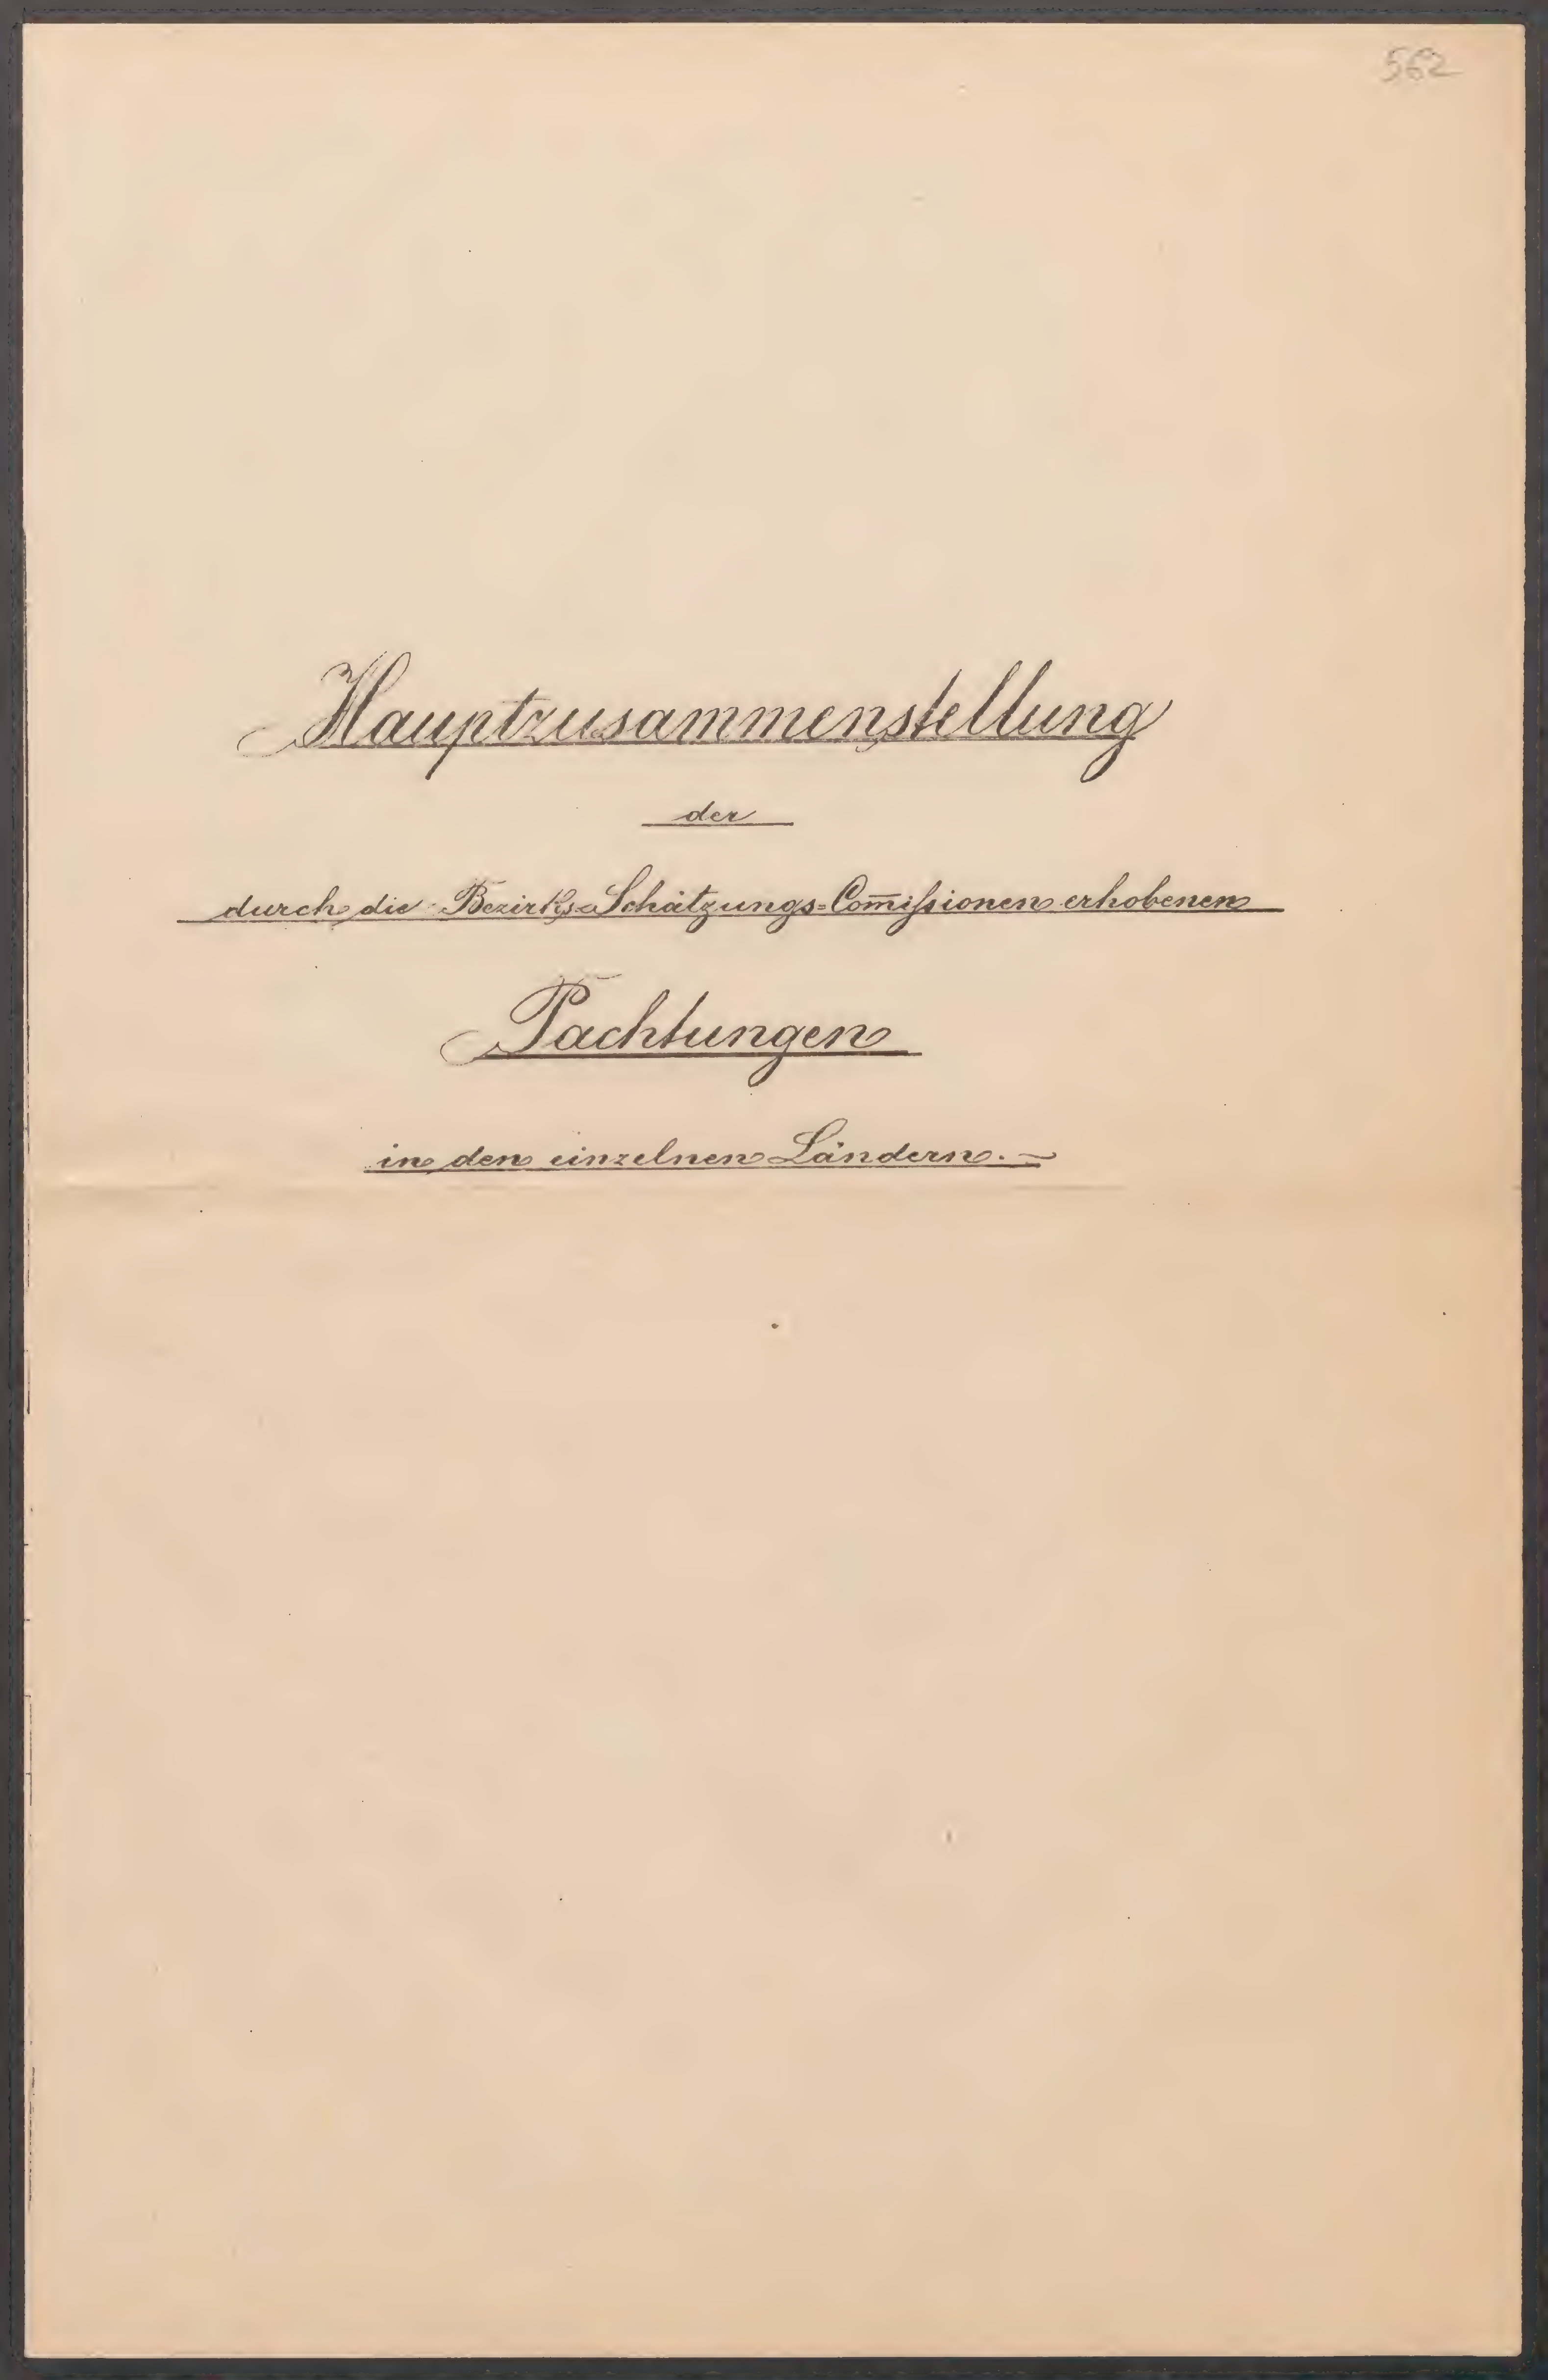 562
Hauptzusammenstellung
der
durch die Bezirks-Schätzungs=Com̅issionen erhobenen
Pachtungen
in den einzelnen Ländern. ~